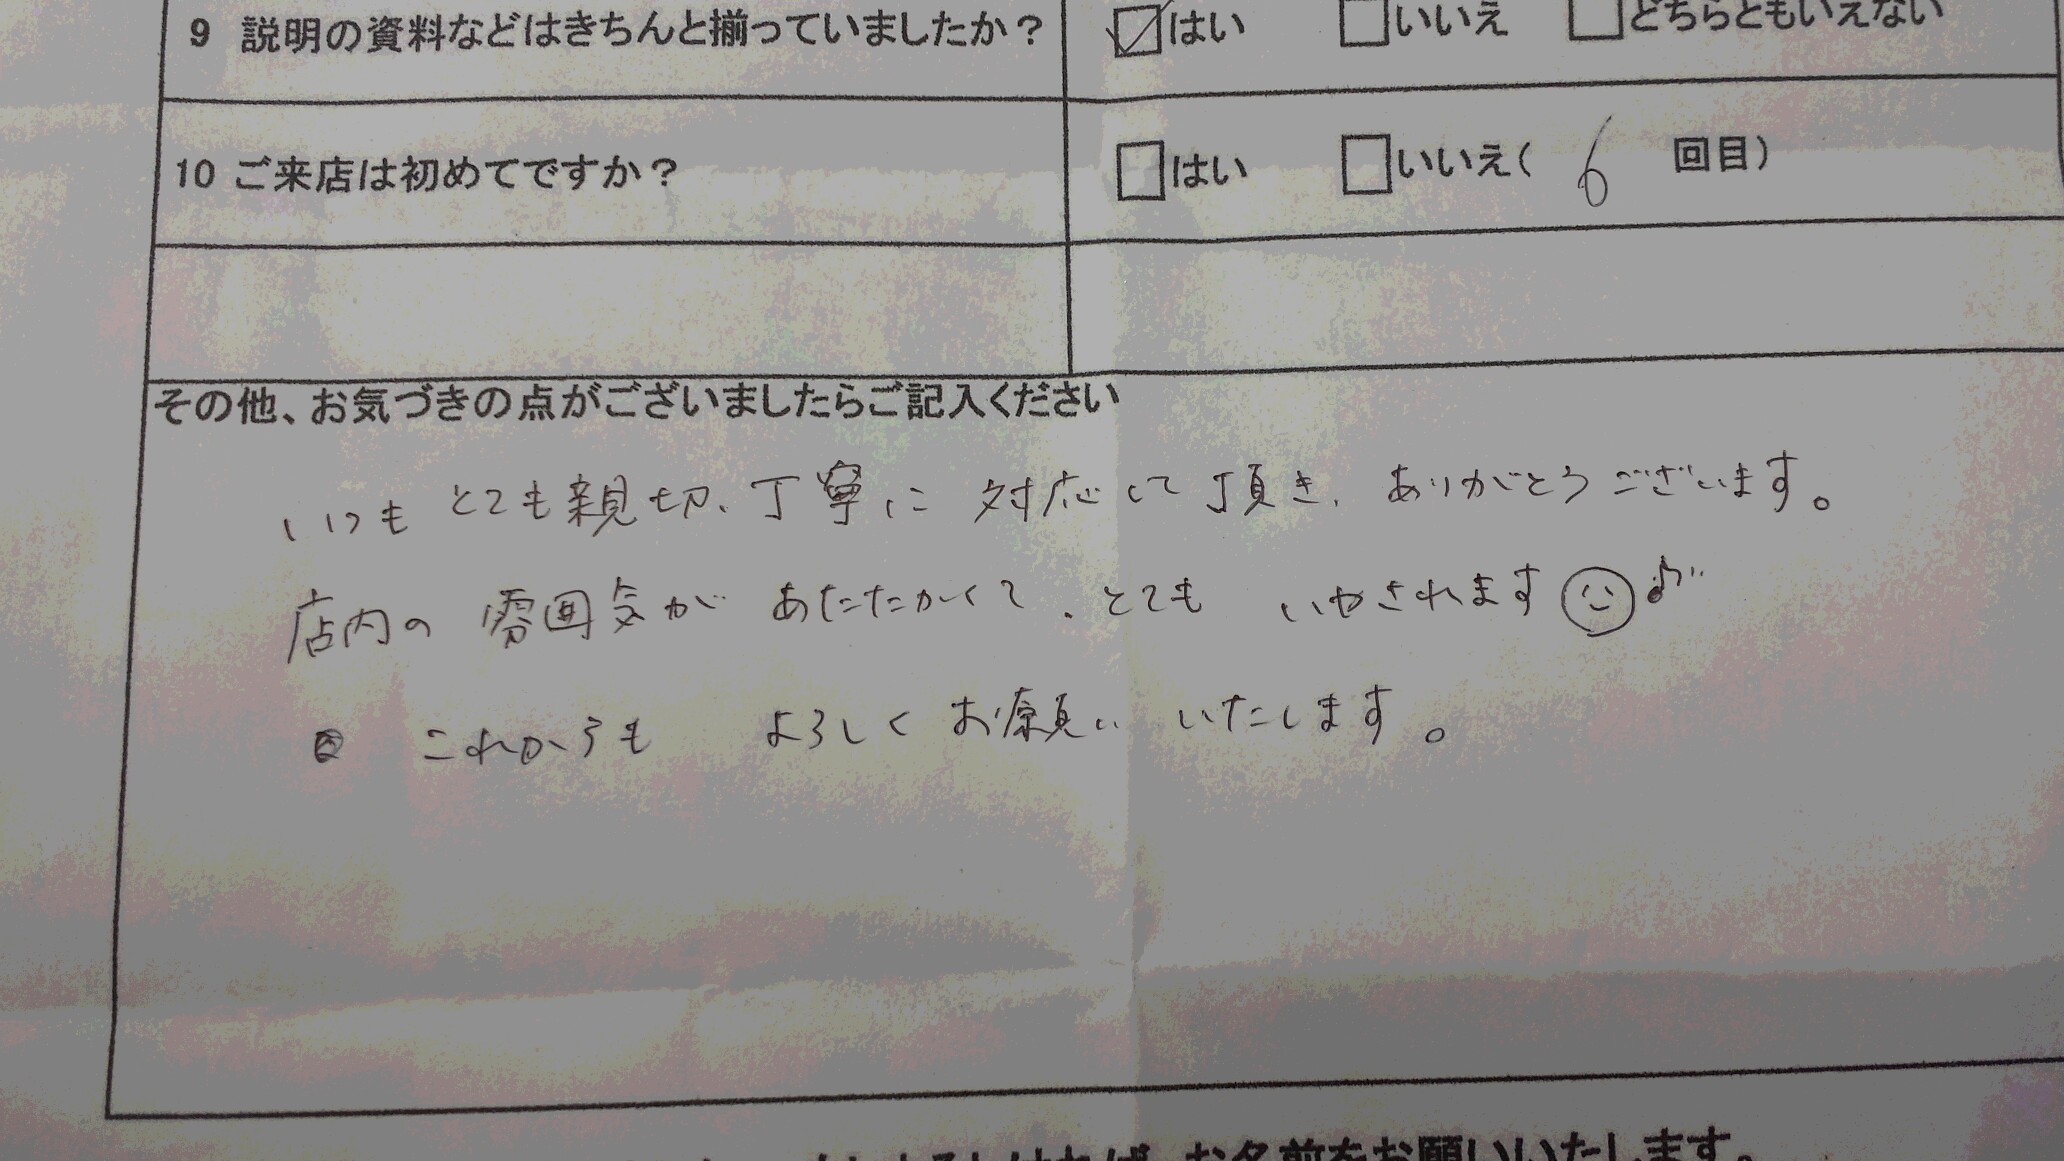 9 説明の資料などはきちんと揃っていましたか？ ☑はい □いいえ □どちらともいえない
10 ご来店は初めてですか？ □はい □いいえ（ 6 回目）
その他、お気づきの点がございましたらご記入ください
いつもとても親切、丁寧に対応して頂き、ありがとうございます。
店内の雰囲気があたたかくて、とてもいやされます☺♪
これからもよろしくお願いいたします。
お名前をお願いいたします。